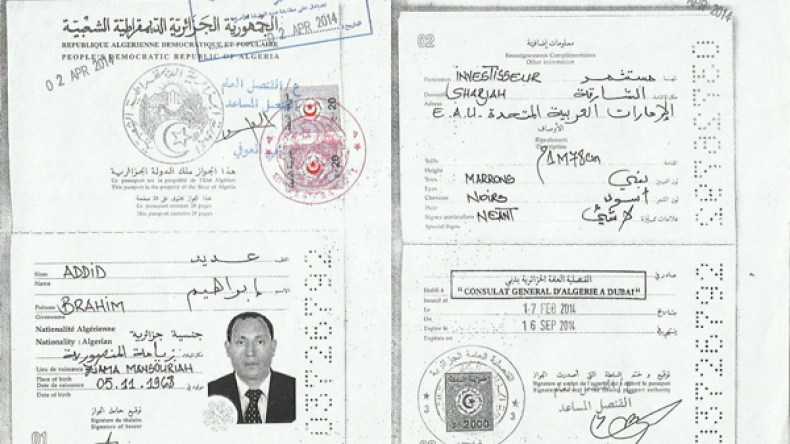 02 APR 2014
الجمهورية الجزائرية الديمقراطية الشعبية
REPUBLIQUE ALGERIENNE DEMOCRATIQUE ET POPULAIRE
PEOPLE'S DEMOCRATIC REPUBLIC OF ALGERIA
02 APR 2014
ع/القنصل العام
القنصل المساعد
20
20
هذا الجواز ملك الدولة الجزائرية
Ce passeport est la propriété de l'Etat Algérien
This passport is the property of the State of Algeria
هذا الجواز يحتوي على 28 صفحة
Ce passeport contient 28 pages
This passport contains 28 pages
عديد
Nom ADDID
Name
إبراهيم
Prénom BRAHIM
Givenname
Nationalité Algérienne جنسية جزائرية
Nationality : Algerian
زيامة المنصورية
Lieu de naissance ZIAMA MANSOURIAH
Place of birth
Date de naissance 05.11.1968
Date of birth
توقيع حامل الجواز
Signature du titulaire
Signature of bearer
01
APR 2014
02
معلومات إضافية
Renseignements Complémentaires
Other information
Profession INVESTISSEUR مستثمر
Domicile SHARJAH الشارقة
Adress E.A.U. الإمارات العربية المتحدة
الأوصاف
Signalement
Description
Taille 1M78cm
Height
Yeux MARRONS بني
Eyes
Cheveux NOIRS أسود
Hair
Signes particuliers NEANT لا شيء
Special Signs
القنصلية العامة الجزائرية بدبي
صادر في
Etabli à "CONSULAT GENERAL D'ALGERIE A DUBAI"
Issued at
Le 17 FEB 2014
On
Expire le 16 SEP 2014
Expires on
توقيع و ختم السلطة التي أصدرت الجواز
Signature et cachet de l'autorité ayant délivré le passeport
القنصل المساعد
القنصلية العامة الجزائرية
2000
3
3